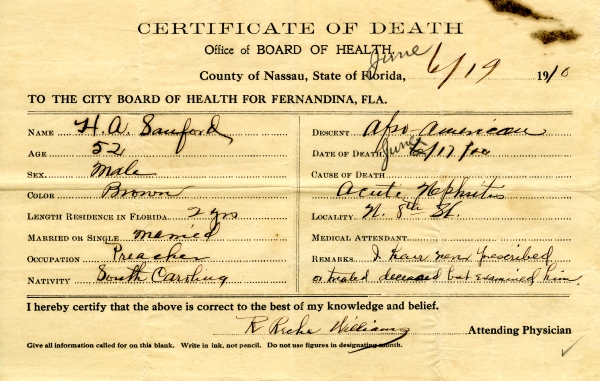 CERTIFICATE OF DEATH
Office of BOARD OF HEALTH,
June
County of Nassau, State of Florida, 6/19 1910
TO THE CITY BOARD OF HEALTH FOR FERNANDINA, FLA.
NAME H. A. Samford
AGE 52
SEX Male
COLOR Brown
LENGTH RESIDENCE IN FLORIDA 2 yrs
MARRIED OR SINGLE Married
OCCUPATION Preacher
NATIVITY South Carolina
DESCENT Afro-American
DATE OF DEATH June 6/17/10
CAUSE OF DEATH
Acute Nephritis
LOCALITY N. 8th St.
MEDICAL ATTENDANT
REMARKS I have never prescribed
or treated deceased but examined him.
I hereby certify that the above is correct to the best of my knowledge and belief.
R Riche Williams Attending Physician
Give all information called for on this blank. Write in ink, not pencil. Do not use figures in designating month.